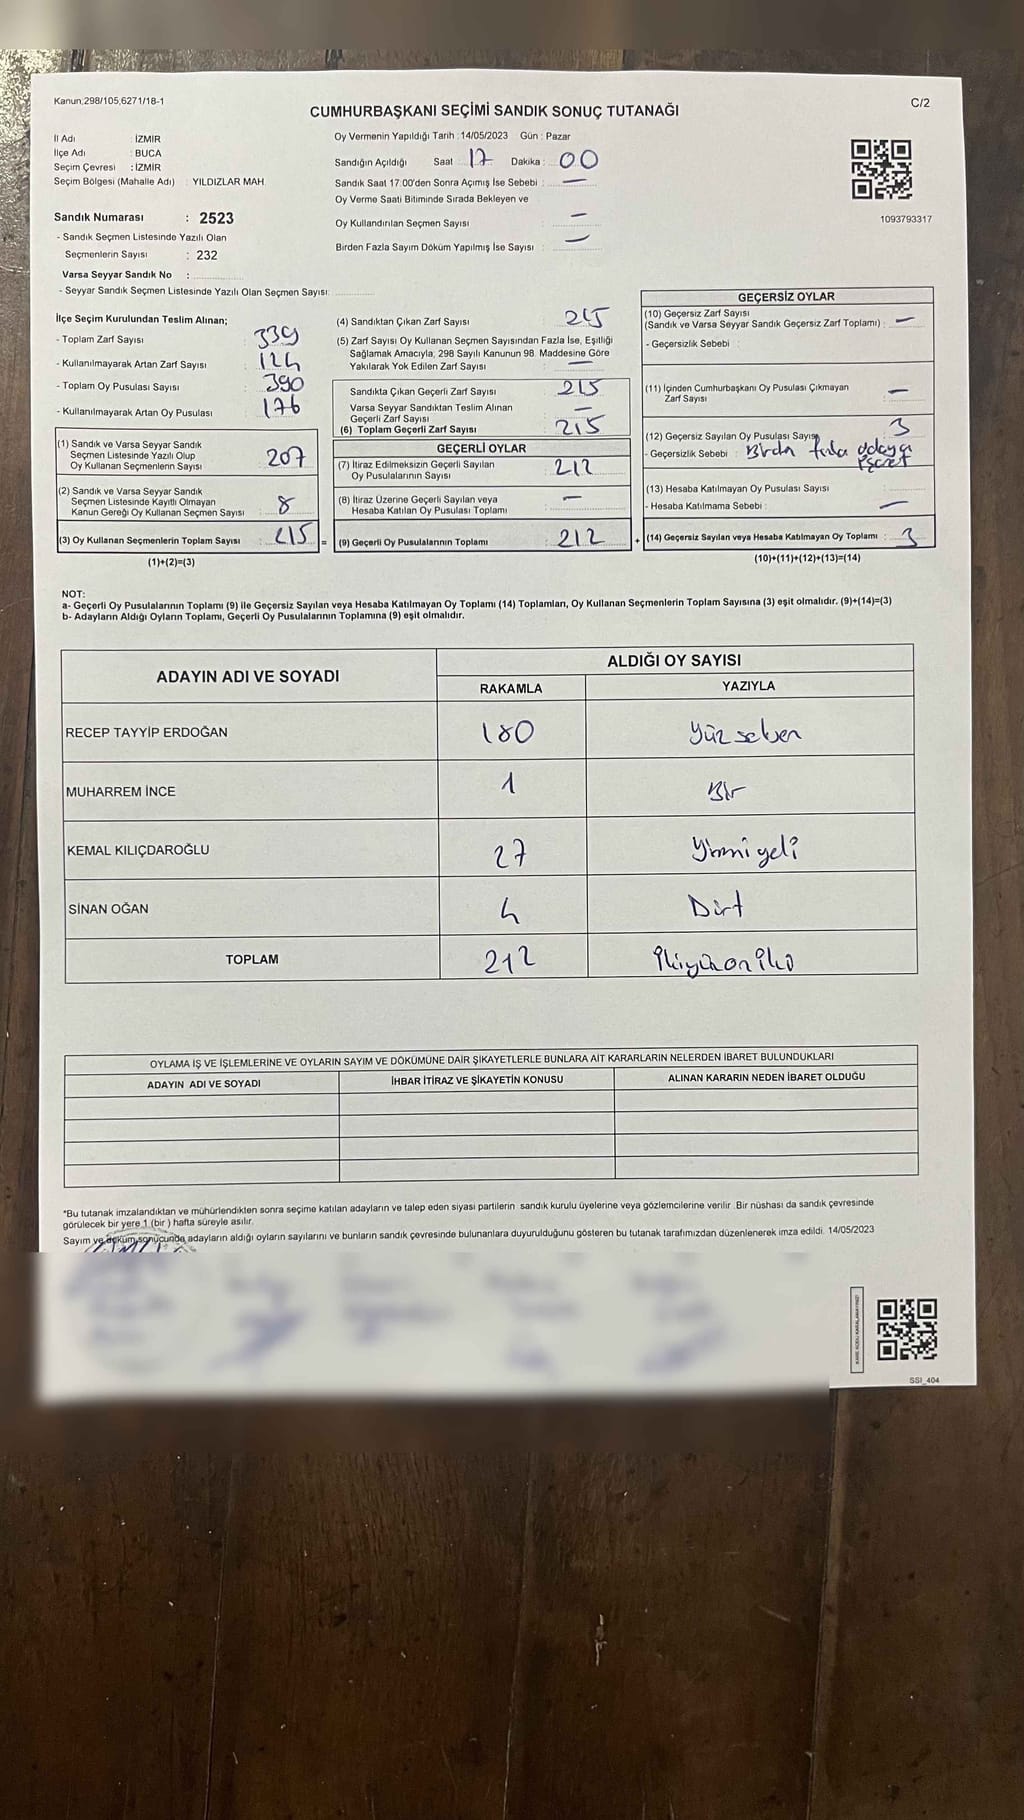 Kanun,298/105,6271/18-1
C/2
CUMHURBAŞKANI SEÇİMİ SANDIK SONUÇ TUTANAĞI
İl Adı : İZMİR
İlçe Adı : BUCA
Seçim Çevresi : İZMİR
Seçim Bölgesi (Mahalle Adı) : YILDIZLAR MAH.
Oy Vermenin Yapıldığı Tarih : 14/05/2023 Gün : Pazar
Sandığın Açıldığı Saat : 17 Dakika : 00
Sandık Saat 17:00'den Sonra Açımış İse Sebebi : —
Oy Verme Saati Bitiminde Sırada Bekleyen ve
Oy Kullandırılan Seçmen Sayısı : —
Birden Fazla Sayım Döküm Yapılmış İse Sayısı : —
1093793317
Sandık Numarası : 2523
- Sandık Seçmen Listesinde Yazılı Olan
Seçmenlerin Sayısı : 232
Varsa Seyyar Sandık No :
- Seyyar Sandık Seçmen Listesinde Yazılı Olan Seçmen Sayısı:
İlçe Seçim Kurulundan Teslim Alınan;
- Toplam Zarf Sayısı : 339
- Kullanılmayarak Artan Zarf Sayısı : 124
- Toplam Oy Pusulası Sayısı : 390
- Kullanılmayarak Artan Oy Pusulası : 176
(1) Sandık ve Varsa Seyyar Sandık
Seçmen Listesinde Yazılı Olup
Oy Kullanan Seçmenlerin Sayısı : 207
(2) Sandık ve Varsa Seyyar Sandık
Seçmen Listesinde Kayıtlı Olmayan
Kanun Gereği Oy Kullanan Seçmen Sayısı : 8
(3) Oy Kullanan Seçmenlerin Toplam Sayısı : 215 =
(1)+(2)=(3)
(4) Sandıktan Çıkan Zarf Sayısı : 215
(5) Zarf Sayısı Oy Kullanan Seçmen Sayısından Fazla İse, Eşitliği
Sağlamak Amacıyla, 298 Sayılı Kanunun 98. Maddesine Göre
Yakılarak Yok Edilen Zarf Sayısı : —
Sandıkta Çıkan Geçerli Zarf Sayısı : 215
Varsa Seyyar Sandıktan Teslim Alınan
Geçerli Zarf Sayısı : —
(6) Toplam Geçerli Zarf Sayısı : 215
GEÇERLİ OYLAR
(7) İtiraz Edilmeksizin Geçerli Sayılan
Oy Pusulalarının Sayısı : 212
(8) İtiraz Üzerine Geçerli Sayılan veya
Hesaba Katılan Oy Pusulası Toplamı : —
(9) Geçerli Oy Pusulalarının Toplamı : 212 +
GEÇERSİZ OYLAR
(10) Geçersiz Zarf Sayısı
(Sandık ve Varsa Seyyar Sandık Geçersiz Zarf Toplamı) : —
- Geçersizlik Sebebi :
(11) İçinden Cumhurbaşkanı Oy Pusulası Çıkmayan
Zarf Sayısı : —
(12) Geçersiz Sayılan Oy Pusulası Sayısı : 3
- Geçersizlik Sebebi : Birdn fazla adaya
işaret
(13) Hesaba Katılmayan Oy Pusulası Sayısı :
- Hesaba Katılmama Sebebi : —
(14) Geçersiz Sayılan veya Hesaba Katılmayan Oy Toplamı : 3
(10)+(11)+(12)+(13)=(14)
NOT:
a- Geçerli Oy Pusulalarının Toplamı (9) ile Geçersiz Sayılan veya Hesaba Katılmayan Oy Toplamı (14) Toplamları, Oy Kullanan Seçmenlerin Toplam Sayısına (3) eşit olmalıdır. (9)+(14)=(3)
b- Adayların Aldığı Oyların Toplamı, Geçerli Oy Pusulalarının Toplamına (9) eşit olmalıdır.
ADAYIN ADI VE SOYADI
ALDIĞI OY SAYISI
RAKAMLA YAZIYLA
RECEP TAYYİP ERDOĞAN 180 Yüz seksen
MUHARREM İNCE 1 Bir
KEMAL KILIÇDAROĞLU 27 Yirmi yedi
SİNAN OĞAN 4 Dört
TOPLAM 212 İkiyüzoniki
OYLAMA İŞ VE İŞLEMLERİNE VE OYLARIN SAYIM VE DÖKÜMÜNE DAİR ŞİKAYETLERLE BUNLARA AİT KARARLARIN NELERDEN İBARET BULUNDUKLARI
ADAYIN ADI VE SOYADI İHBAR İTİRAZ VE ŞİKAYETİN KONUSU ALINAN KARARIN NEDEN İBARET OLDUĞU
*Bu tutanak imzalandıktan ve mühürlendikten sonra seçime katılan adayların ve talep eden siyasi partilerin sandık kurulu üyelerine veya gözlemcilerine verilir. Bir nüshası da sandık çevresinde
görülecek bir yere 1 (bir ) hafta süreyle asılır.
Sayım ve döküm sonucunda adayların aldığı oyların sayılarını ve bunların sandık çevresinde bulunanlara duyurulduğunu gösteren bu tutanak tarafımızdan düzenlenerek imza edildi. 14/05/2023
SSI_404